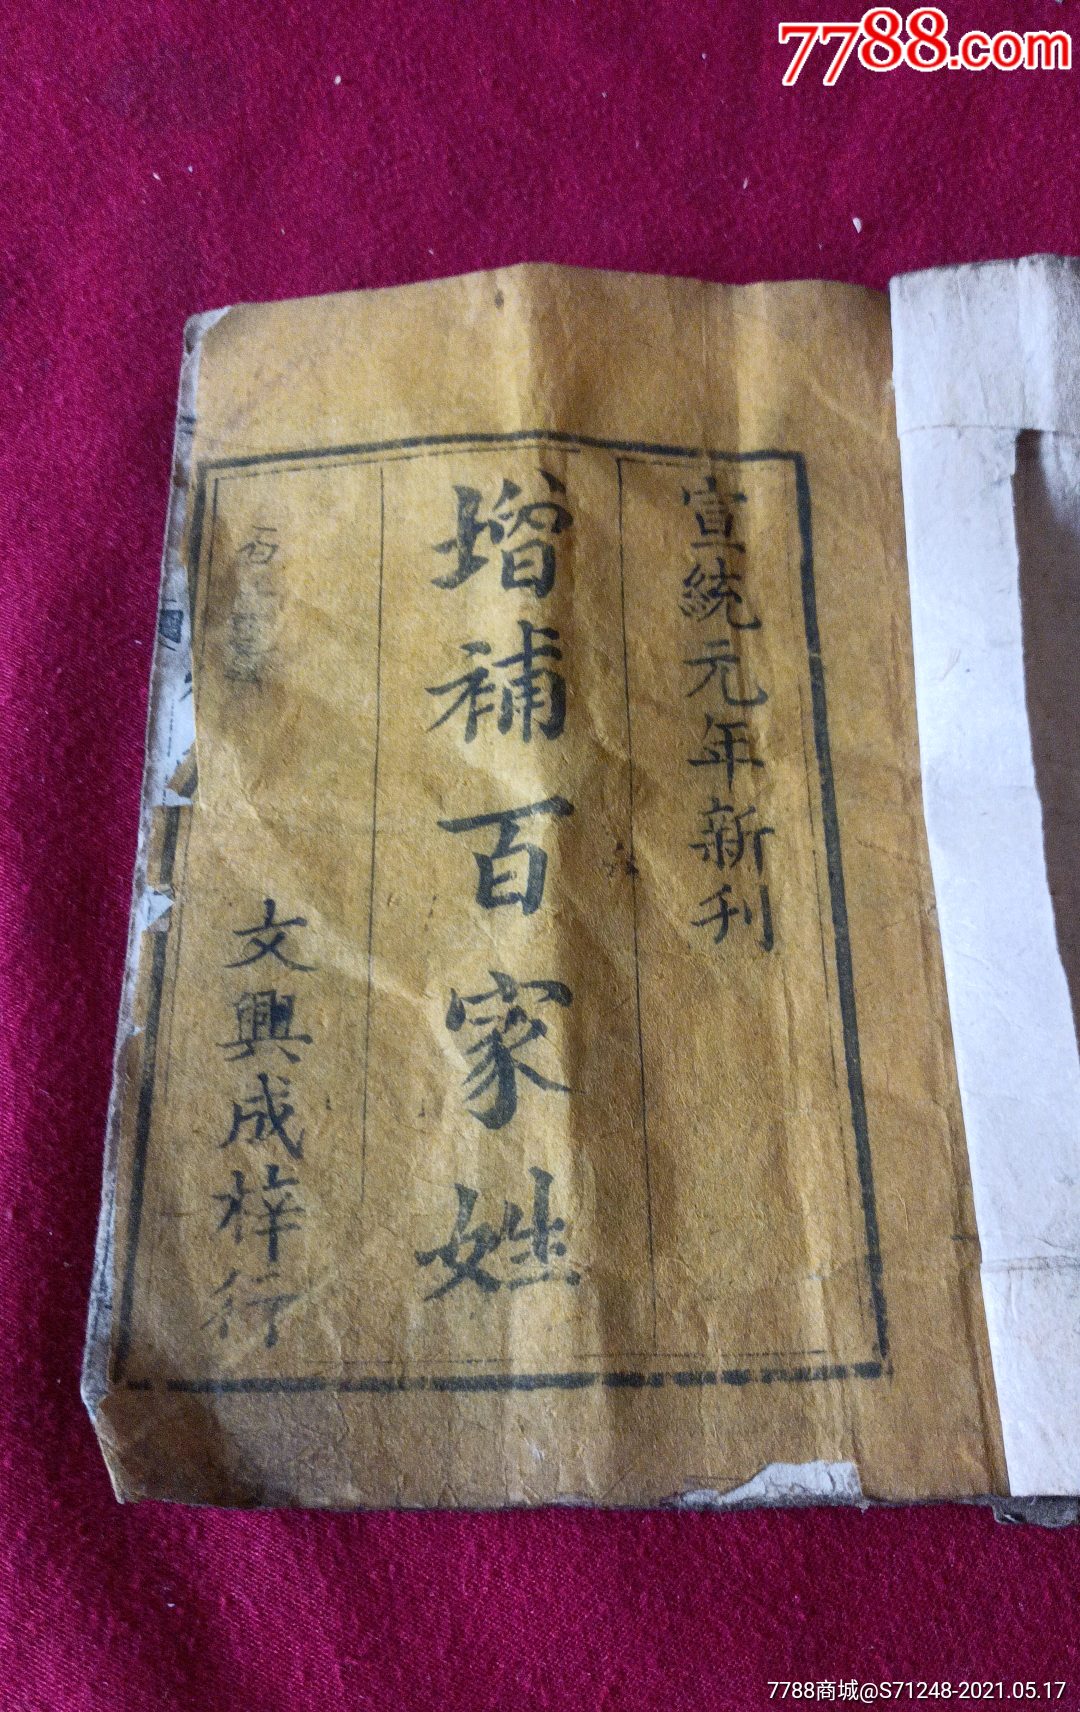 7788.com
宣統元年新刊
增補百家姓
文興成梓行
7788商城@S71248-2021.05.17